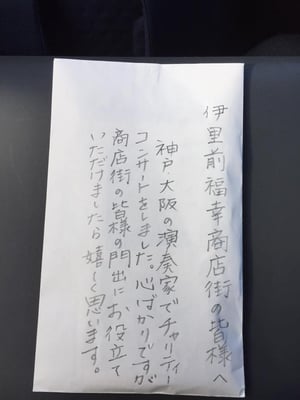 伊里前福幸商店街の皆様へ
神戸・大阪の演奏家でチャリティー
コンサートをしました。心ばかりですが
商店街の皆様の門出にお役立て
いただけましたら嬉しく思います。